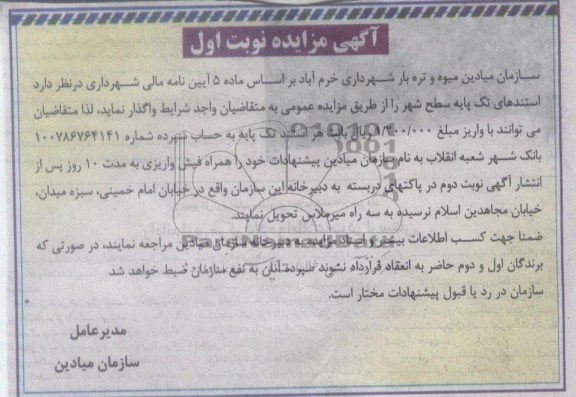 آگهی مزایده نوبت اول
سازمان میادین میوه و تره بار شهرداری خرم آباد بر اساس ماده ۵ آیین نامه مالی شهرداری درنظر دارد
استندهای تک پایه سطح شهر را از طریق مزایده عمومی به متقاضیان واجد شرایط واگذار نماید، لذا متقاضیان
می توانند با واریز مبلغ ریال بابت هر استند تک پایه به حساب سپرده شماره ۱۰۰۷۸۶۷۶۴۱۴۱
بانک شهر شعبه انقلاب به نام سازمان میادین پیشنهادات خود را همراه فیش واریزی به مدت ۱۰ روز پس از
انتشار آگهی نوبت دوم در پاکتهای دربسته به دبیرخانه این سازمان واقع در خیابان امام خمینی، سبزه میدان،
خیابان مجاهدین اسلام نرسیده به سه راه میرملاس تحویل نمایند.
ضمنا جهت کسب اطلاعات بیشتر و اسناد مزایده به دبیرخانه سازمان میادین مراجعه نمایند، در صورتی که
برندگان اول و دوم حاضر به انعقاد قرارداد نشوند سپرده آنان به نفع سازمان ضبط خواهد شد
سازمان در رد یا قبول پیشنهادات مختار است.
مدیرعامل
سازمان میادین